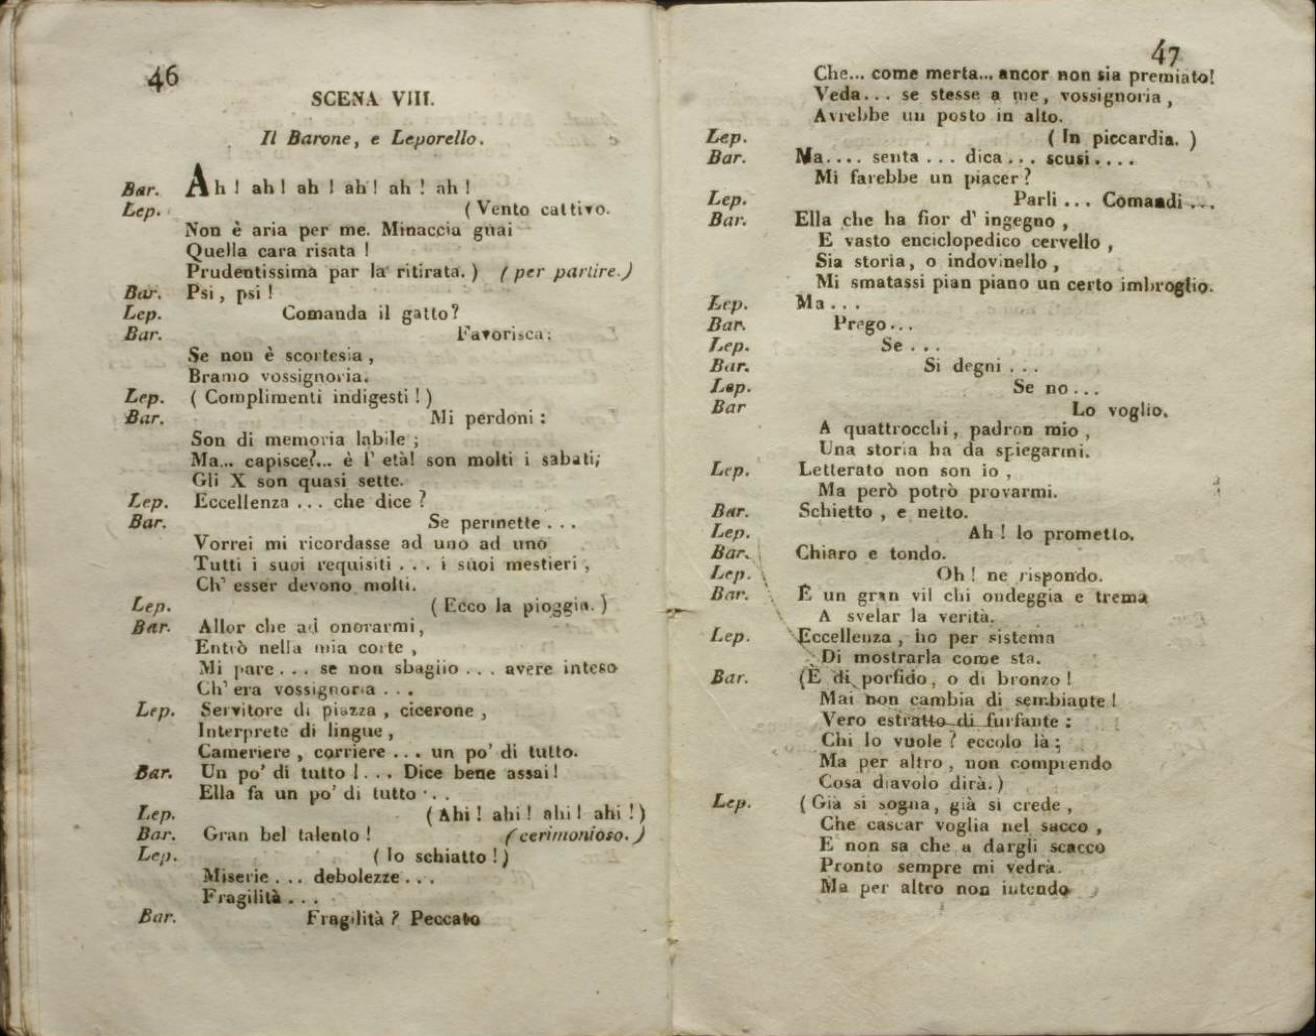 46
SCENA VIII.
Il Barone, e Leporello.
Bar. Ah! ah! ah! ah! ah! ah!
Lep. (Vento cattivo.
Non è aria per me. Minaccia guai
Quella cara risata!
Prudentissima par la ritirata.) (per partire.)
Bar. Psi, psi!
Lep. Comanda il gatto?
Bar. Favorisca:
Se non è scortesia,
Bramo vossignoria.
Lep. (Complimenti indigesti!)
Bar. Mi perdoni:
Son di memoria labile;
Ma... capisce?... è l' età! son molti i sabati;
Gli X son quasi sette.
Lep. Eccellenza... che dice?
Bar. Se permette...
Vorrei mi ricordasse ad uno ad uno
Tutti i suoi requisiti... i suoi mestieri,
Ch' esser devono molti.
Lep. (Ecco la pioggia.)
Bar. Allor che ad onorarmi,
Entrò nella mia corte,
Mi pare... se non sbaglio... avere inteso
Ch' era vossignoria...
Lep. Servitore di piazza, cicerone,
Interprete di lingue,
Cameriere, corriere... un po' di tutto.
Bar. Un po' di tutto!... Dice bene assai!
Ella fa un po' di tutto...
Lep. (Ahi! ahi! ahi! ahi!)
Bar. Gran bel talento! (cerimonioso.)
Lep. (Io schiatto!)
Miserie... debolezze...
Fragilità...
Bar. Fragilità? Peccato
47
Che... come merta... ancor non sia premiato!
Veda... se stesse a me, vossignoria,
Avrebbe un posto in alto.
Lep. (In piccardia.)
Bar. Ma.... senta... dica... scusi....
Mi farebbe un piacer?
Lep. Parli... Comandi...
Bar. Ella che ha fior d' ingegno,
E vasto enciclopedico cervello,
Sia storia, o indovinello,
Mi smatassi pian piano un certo imbroglio.
Lep. Ma...
Bar. Prego...
Lep. Se...
Bar. Si degni...
Lep. Se no...
Bar Lo voglio.
A quattrocchi, padron mio,
Una storia ha da spiegarmi.
Lep. Letterato non son io,
Ma però potrò provarmi.
Bar. Schietto, e netto.
Lep. Ah! lo prometto.
Bar. Chiaro e tondo.
Lep. Oh! ne rispondo.
Bar. È un gran vil chi ondeggia e trema
A svelar la verità.
Lep. Eccellenza, ho per sistema
Di mostrarla come sta.
Bar. (È di porfido, o di bronzo!
Mai non cambia di sembiante!
Vero estratto di furfante:
Chi lo vuole? eccolo là;
Ma per altro, non comprendo
Cosa diavolo dirà.)
Lep. (Già si sogna, già si crede,
Che cascar voglia nel sacco,
E non sa che a dargli scacco
Pronto sempre mi vedrà.
Ma per altro non intendo